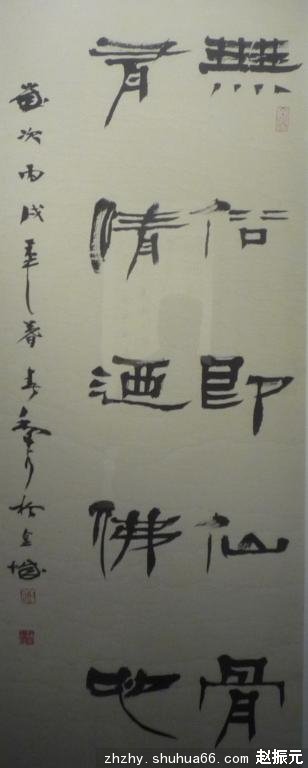 無俗即仙骨
有情迺佛心
歲次丙戌年暮春 於金城
zhzhy.shuhua66.com 赵振元